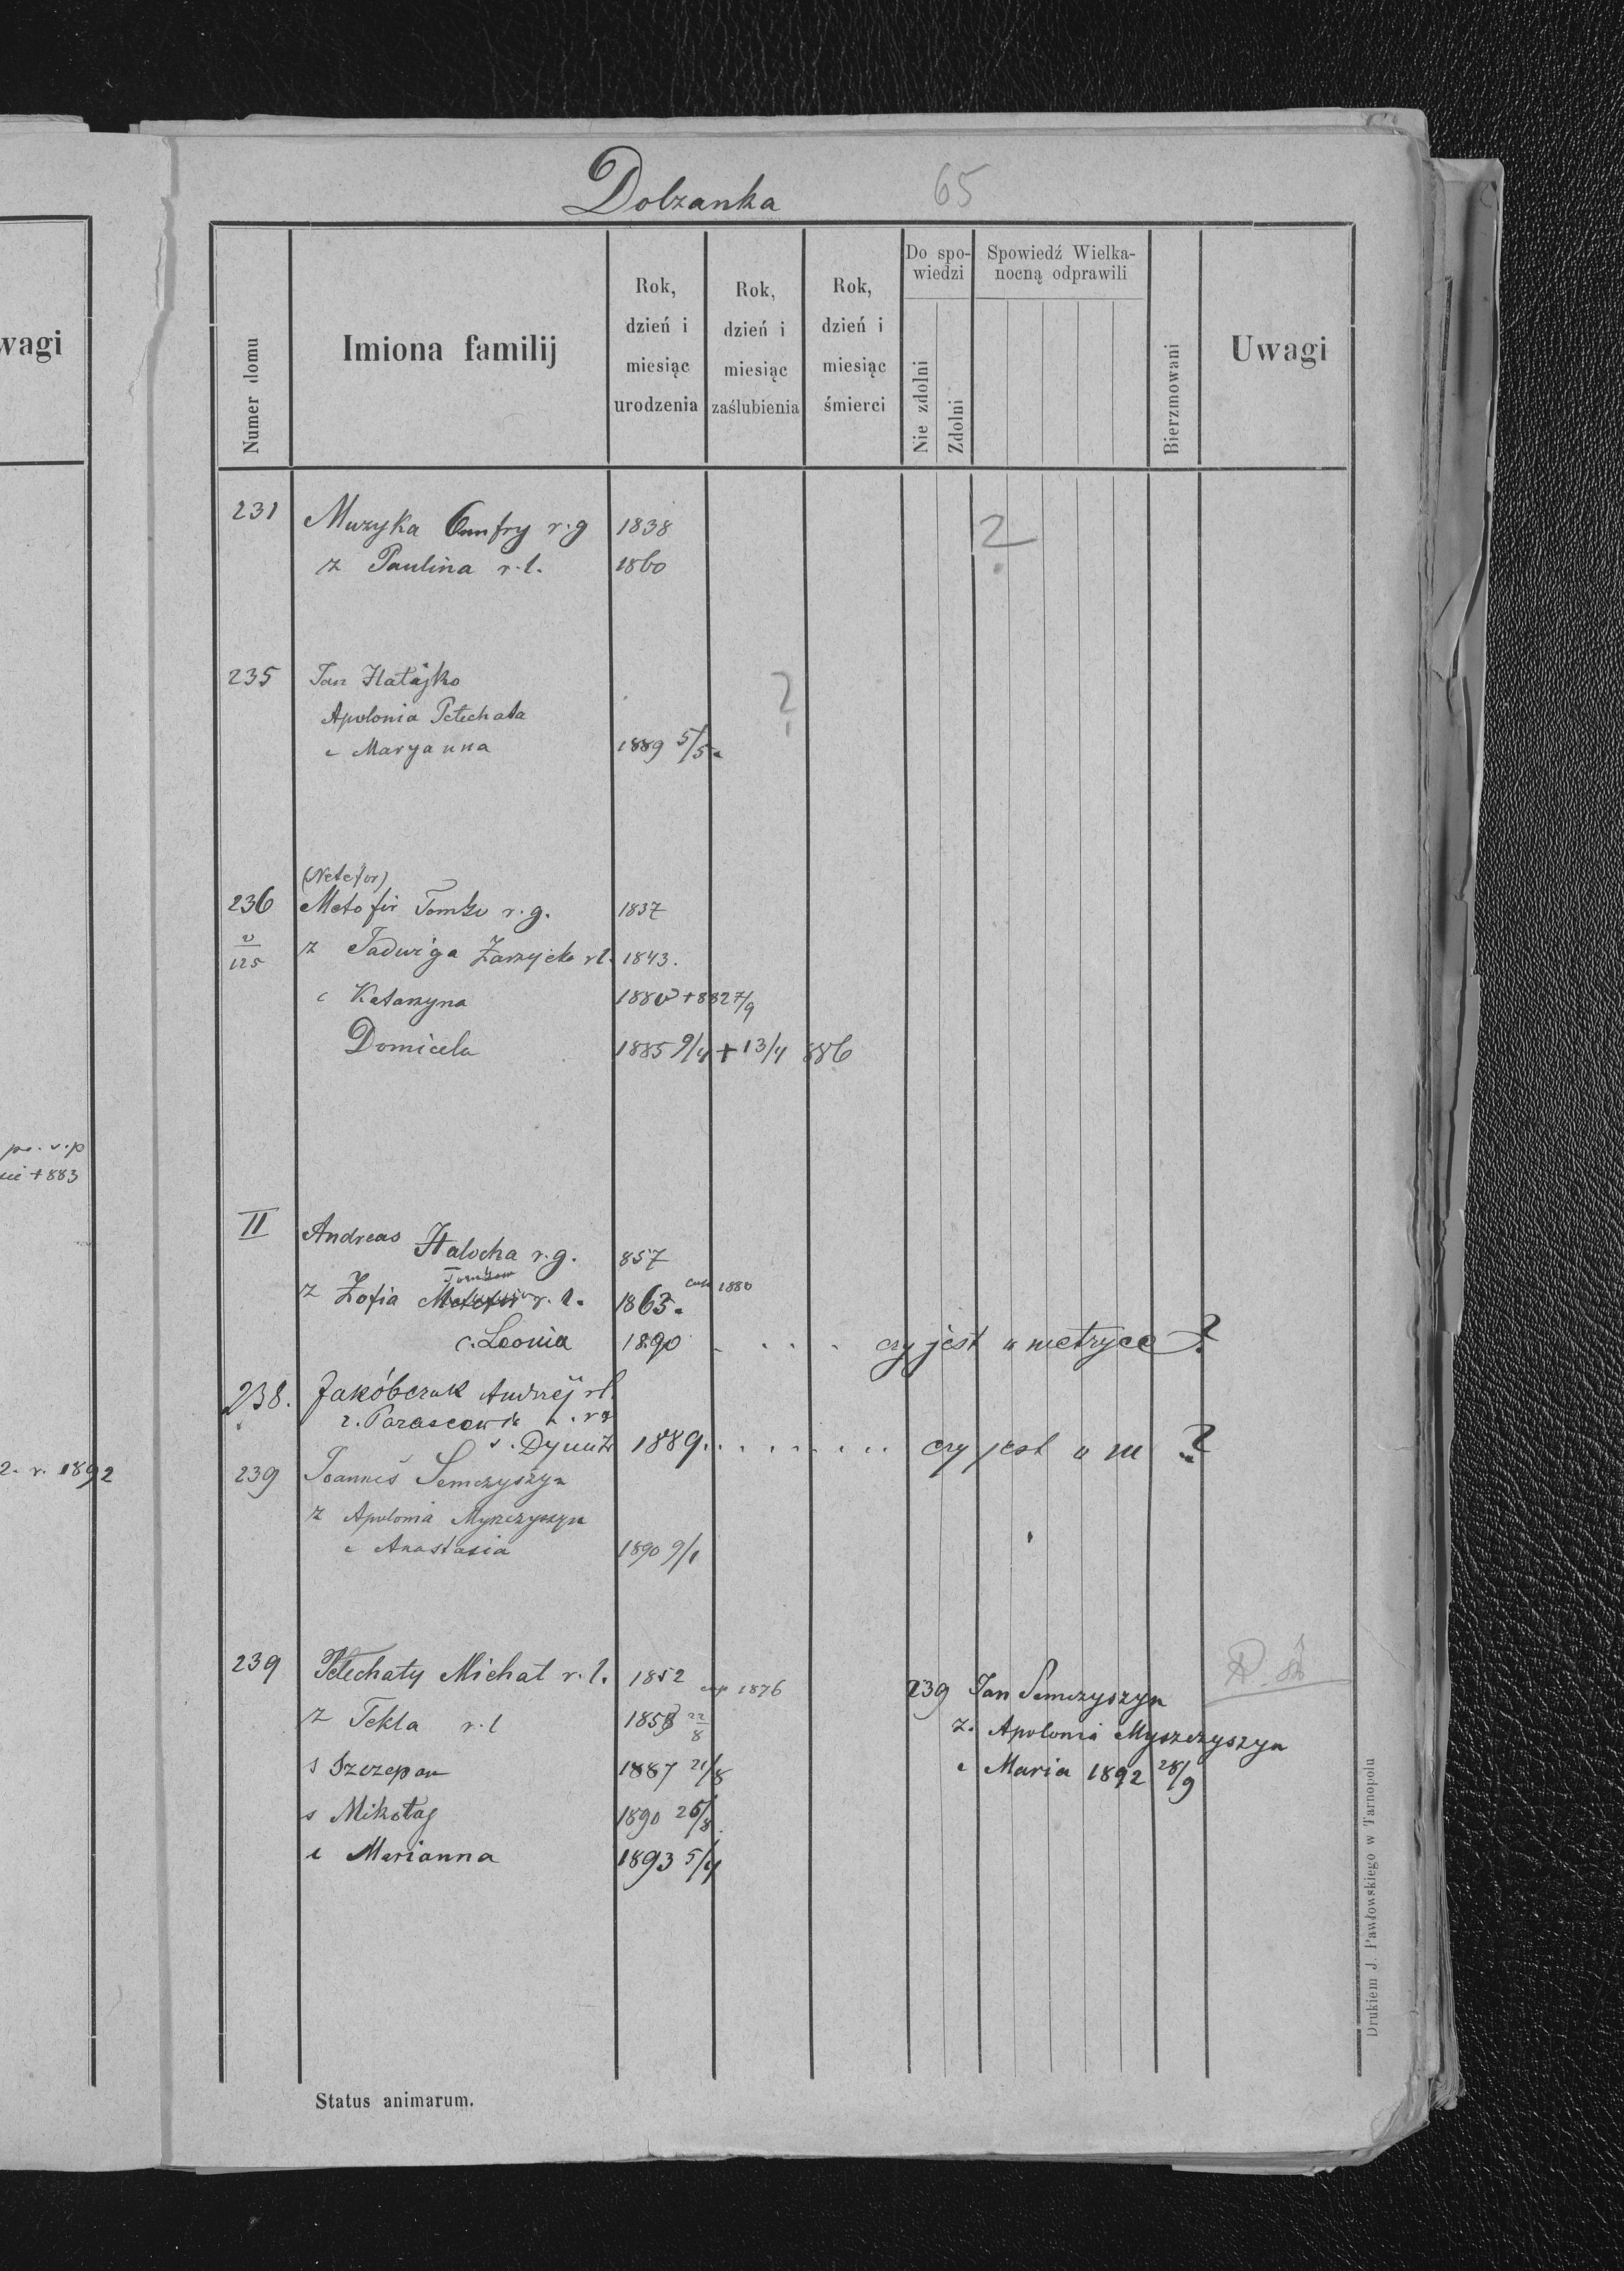 Dolzanka 65
wagi
Numer domu
Imiona familij
Rok, dzień i miesiąc urodzenia
Rok, dzień i miesiąc zaślubienia
Rok, dzień i miesiąc śmierci
Do spo-
wiedzi
Nie zdolni
Zdolni
Spowiedź Wielka-
nocną odprawili
Bierzmowani
Uwagi
231 Muzyka Onufry r.g 1838 ?
z Paulina r.l. 1860
235 Jan Hałajko ?
Apolonia Petechata
c Maryanna 1889 5/5
(Netefor)
236 Metofir Tomko r.g. 1837
v
125 z Jadwiga Zarzycka rl. 1843.
c Katarzyna 1880 + 882 7/9
Domicela 1885 9/4 + 13/4 886
po. v.p
+ 883
II Andreas Halocha r.g. 857
z Zofia r.l. 1863. 1880
c. Leonia 1890 . . . . czy jest w metryce ?
238. Jakóbczak Andrzej rl.
z. r g
s. 1889. . . . . . . . czy jest w m ?
2. r. 1892
239 Joannes Semczyszyn
z Apolonia Myszczyszyn
c Anastasia 1890 9/1
239 Petechaty Michał r.l. 1852 cop 1876
z Tekla r.l 1858 22/8
s Szczepan 1887 21/8
s Mikołaj 1890 26/8
c Marianna 1893 5/4
239 Jan Semczyszyn
z. Apolonia Myszczyszyn
c Maria 1892 28/9
Drukiem J. Pawłowskiego w Tarnopolu
Status animarum.